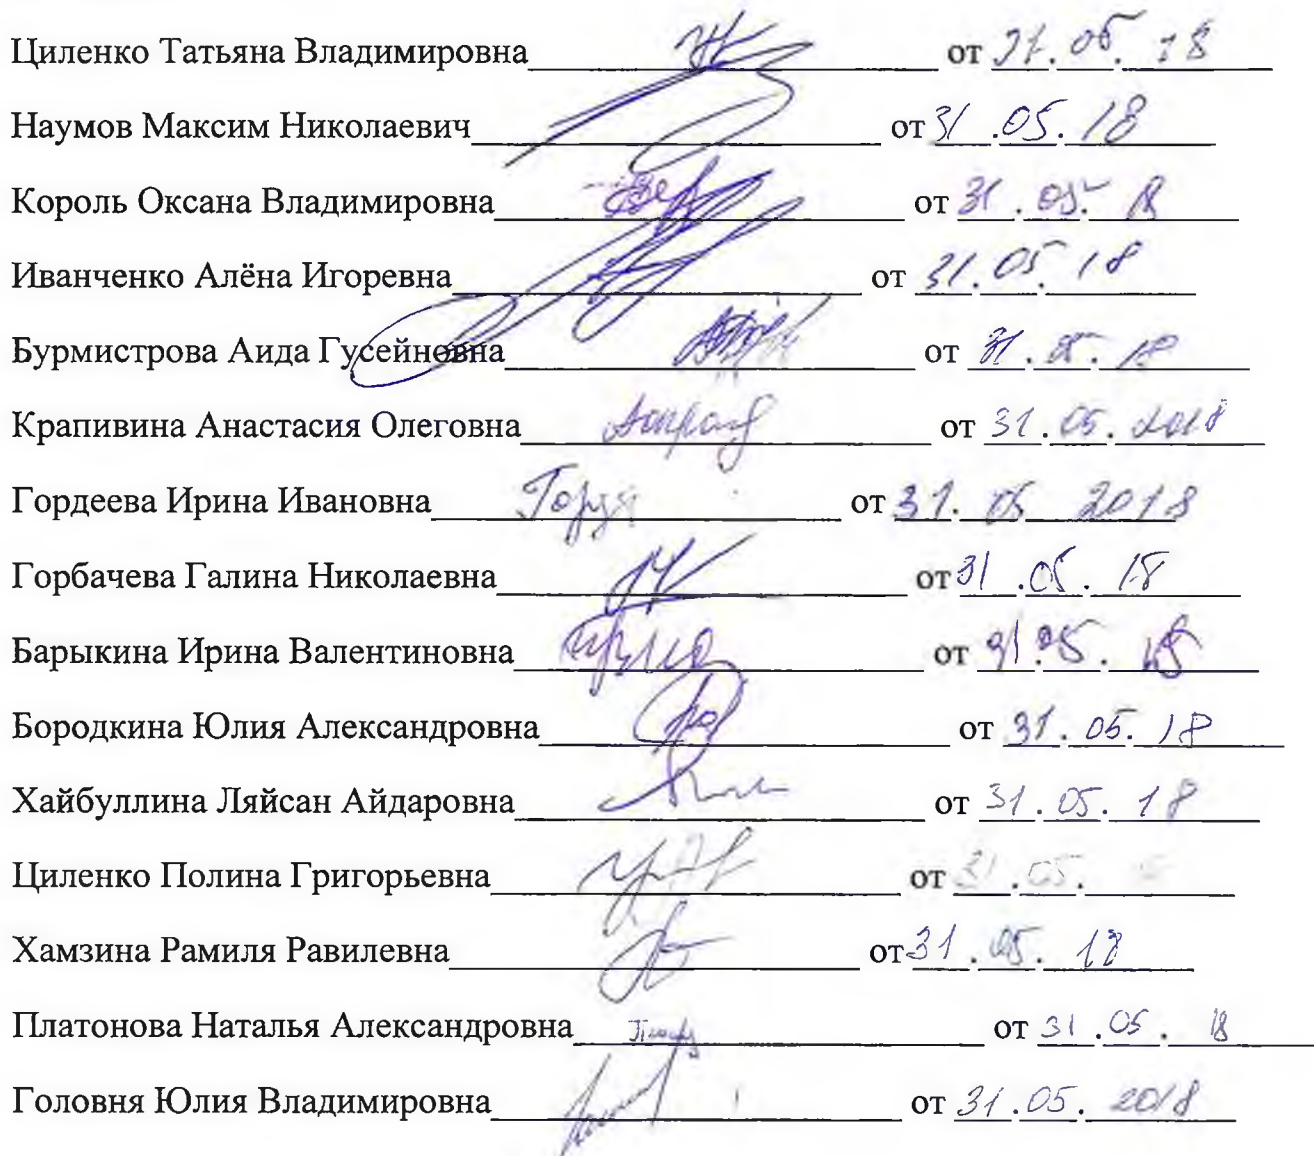 Циленко Татьяна Владимировна от 31.05.18
Наумов Максим Николаевич от 31.05.18
Король Оксана Владимировна от 31.05.18
Иванченко Алёна Игоревна от 31.05.18
Бурмистрова Аида Гусейновна от 31.05.18
Крапивина Анастасия Олеговна от 31.05.2018
Гордеева Ирина Ивановна от 31.05 2018
Горбачева Галина Николаевна от 31.05.18
Барыкина Ирина Валентиновна от 31.05.18
Бородкина Юлия Александровна от 31.05.18
Хайбуллина Ляйсан Айдаровна от 31.05.18
Циленко Полина Григорьевна от 31.05.
Хамзина Рамиля Равилевна от 31.05.18
Платонова Наталья Александровна от 31.05.18
Головня Юлия Владимировна от 31.05.2018